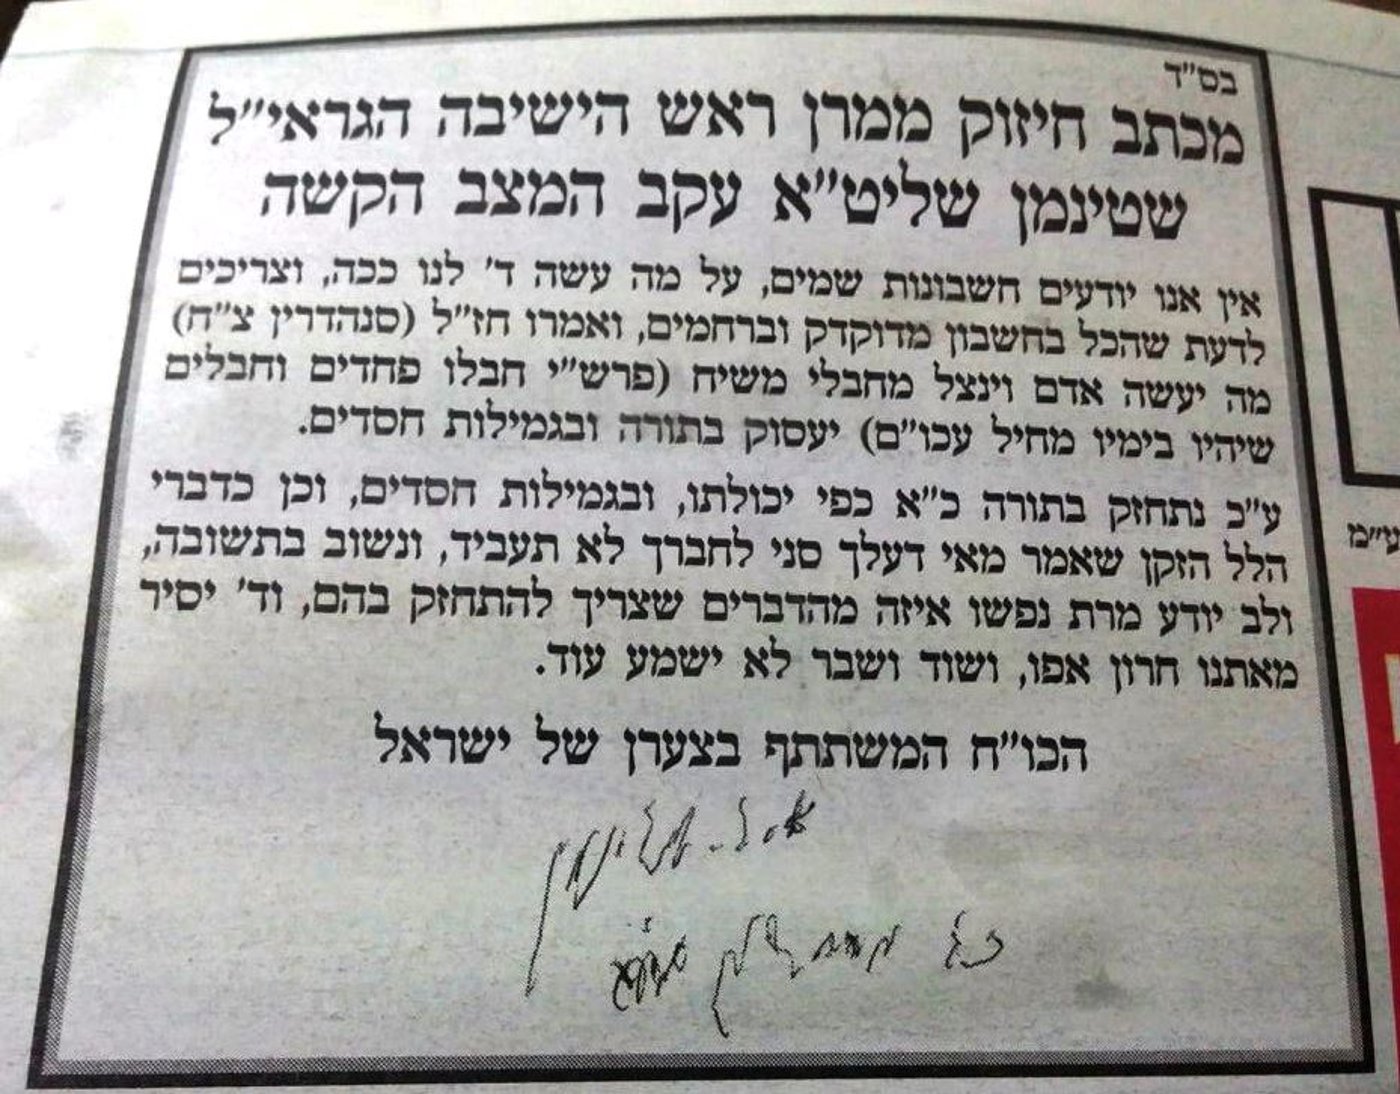 בס״ד
מכתב חיזוק ממרן ראש הישיבה הגראי״ל
שטינמן שליט״א עקב המצב הקשה
אין אנו יודעים חשבונות שמים, על מה עשה ד׳ לנו ככה, וצריכים
לדעת שהכל בחשבון מדוקדק וברחמים, ואמרו חז״ל (סנהדרין צ״ח)
מה יעשה אדם וינצל מחבלי משיח (פרש״י חבלו פחדים וחבלים
שיהיו בימיו מחיל עכו״ם) יעסוק בתורה ובגמילות חסדים.
ע״כ נתחזק בתורה כ״א כפי יכולתו, ובגמילות חסדים, וכן כדברי
הלל הזקן שאמר מאי דעלך סני לחברך לא תעביד, ונשוב בתשובה,
ולב יודע מרת נפשו איזה מהדברים שצריך להתחזק בהם, וד׳ יסיר
מאתנו חרון אפו, ושוד ושבר לא ישמע עוד.
הכו״ח המשתתף בצערן של ישראל
א.ל. שטינמן
ע״מ